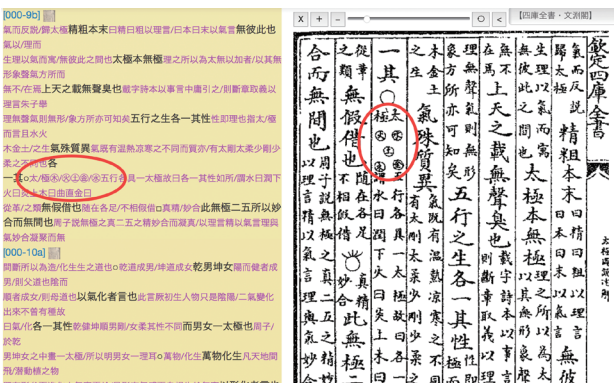 [000-9b]
氣而反説/歸太極精粗本末曰精曰粗以理言/曰本曰末以氣言無彼此也
氣以/理而
生理以氣而寓/無彼此之間也太極本無極理之所以為太無以加者/以其無
形象聲氣方所而
無不/在焉上天之載無聲臭也載字詩本以事言中庸引之/則斷章取義以
理言朱子舉
理無聲氣則無形/象方所亦可知矣五行之生各一其性性即理也指太/極
而言且水火
木金土/之生氣殊質異氣既有温熱凉寒之不同而質亦/有太剛太柔少剛少
柔之不同也各
一其o太/極㊌/㊋㊏㊎/㊍五行各具一太極故曰各一其性如所/謂水曰潤下
火曰炎上木曰曲直金曰
從革/之類無假借也随在各足/不相假借o真精/妙合此無極二五所以妙
合而無間也周子説無極之真二五之精妙合而凝真/以理言精以氣言理與
氣妙合凝聚而無
[000-10a]
間斷所以為造/化生生之道也o乾道成男/坤道成女乾男坤女陽而健者成
男/則父道也隂而
順者成女/則母道也以氣化者言也此言厥初生人物只是隂陽/二氣變化
出來不曾有種故
曰氣/化各一其性乾健坤順男剛/女柔其性不同而男女一太極也周子/
於乾
男坤女之中畫一太極/所以明男女一理耳o萬物/化生萬物化生凡天地間
飛/潛動植之物
X + - <
【四庫全書・文淵閣】
欽定四庫全書
太極圖説述解
氣而反説歸太極精粗本末曰精曰粗以理言曰本曰末以氣言無彼
生理以氣而寓無彼此之間也太極本無極理之所以為太以其無形象聲
無不在焉上天之載無聲臭也載字詩本以事言則斷章取義以理
理無聲氣則無形象方所亦可知矣五行之生各一其性性即理極而
木金土之生氣殊質異氣既有温熱凉寒之不同有太剛太柔少剛少柔之
一其○太極㊌㊋㊏㊎㊍五行各具一太極故曰各一謂水曰潤下火曰炎上木曰
從革之類無假借也随在各足不相假借○真精妙合此無極二
合而無間也周子説無極之真二五之精妙以理言精以氣言理與氣妙合